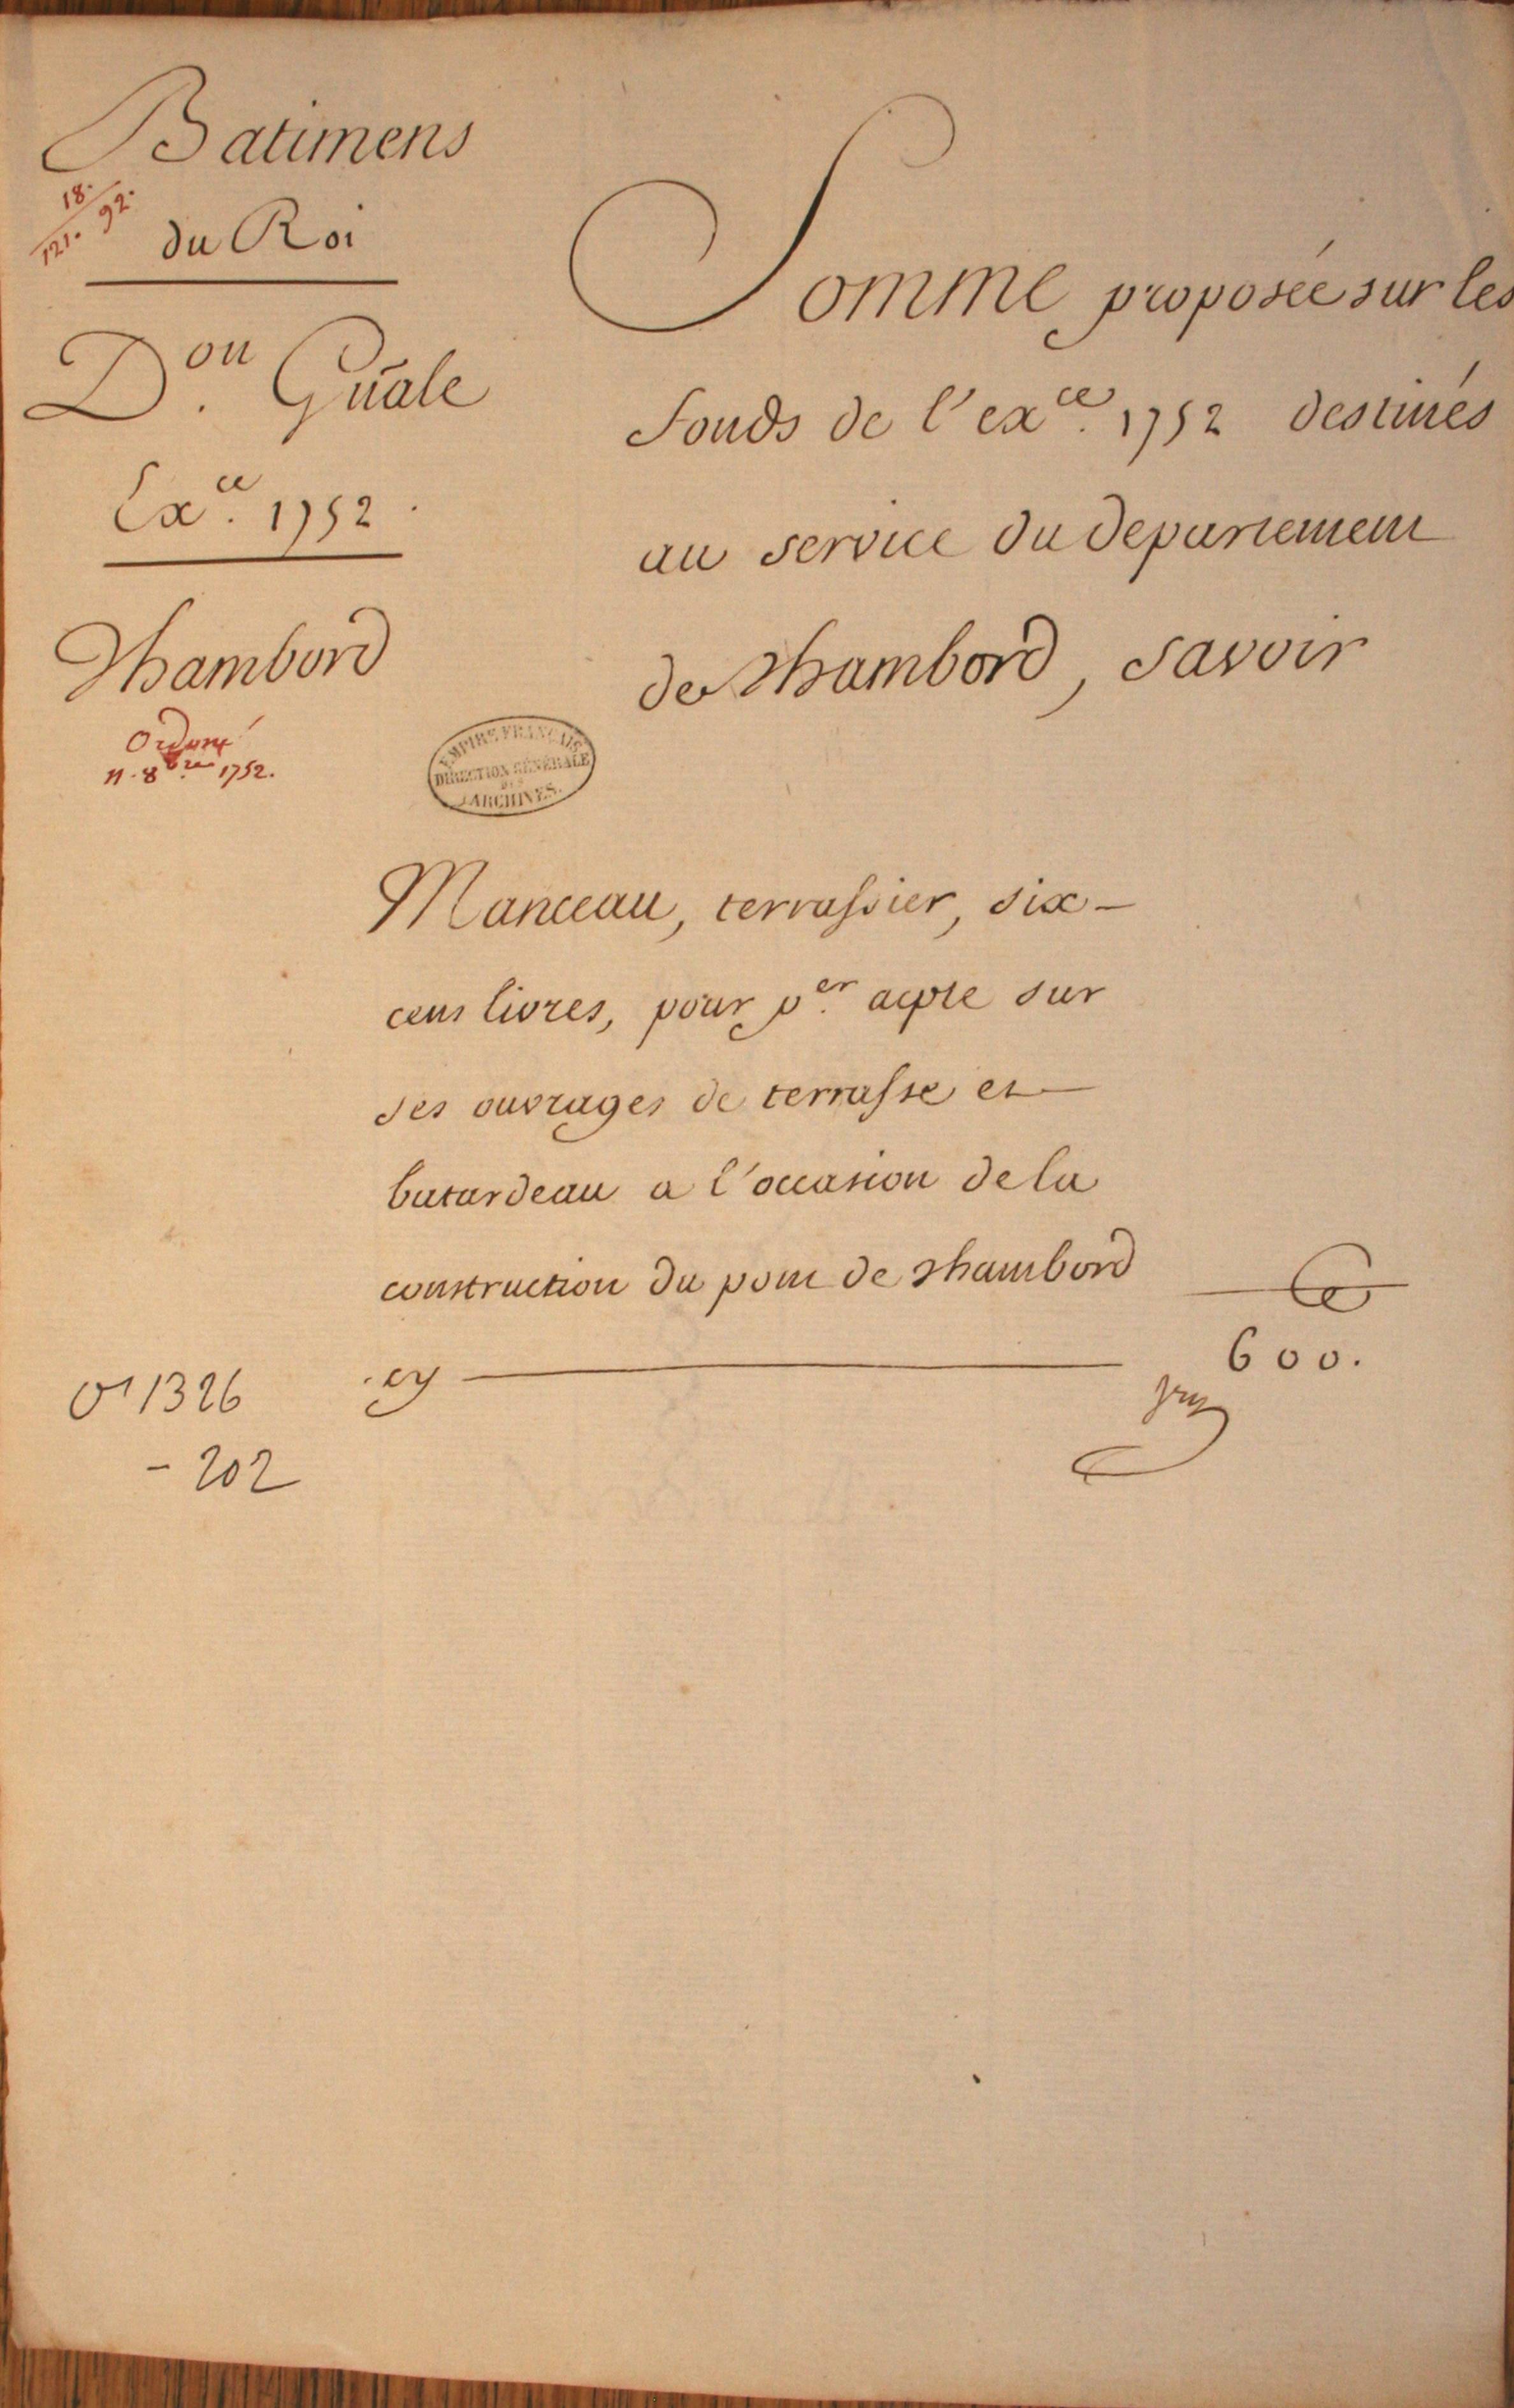 Batimens
18.
121. 92.
du Roi
Don. Gñale
Exce. 1752.
Chambord
Ordoné
11. 8bre 1752.
Somme proposée sur les
fonds de l'exce. 1752 destinés
au service du departement
de Chambord, Savoir
EMPIRE FRANÇAIS
DIRECTION GÉNÉRALE
DES
ARCHIVES.
Manceau, terrassier, six-
cens livres, pour per. acpte sur
ses ouvrages de terrasse et
batardeau a l'occasion de la
construction du pont de Chambord
cy 600.
O1 1326
- 202